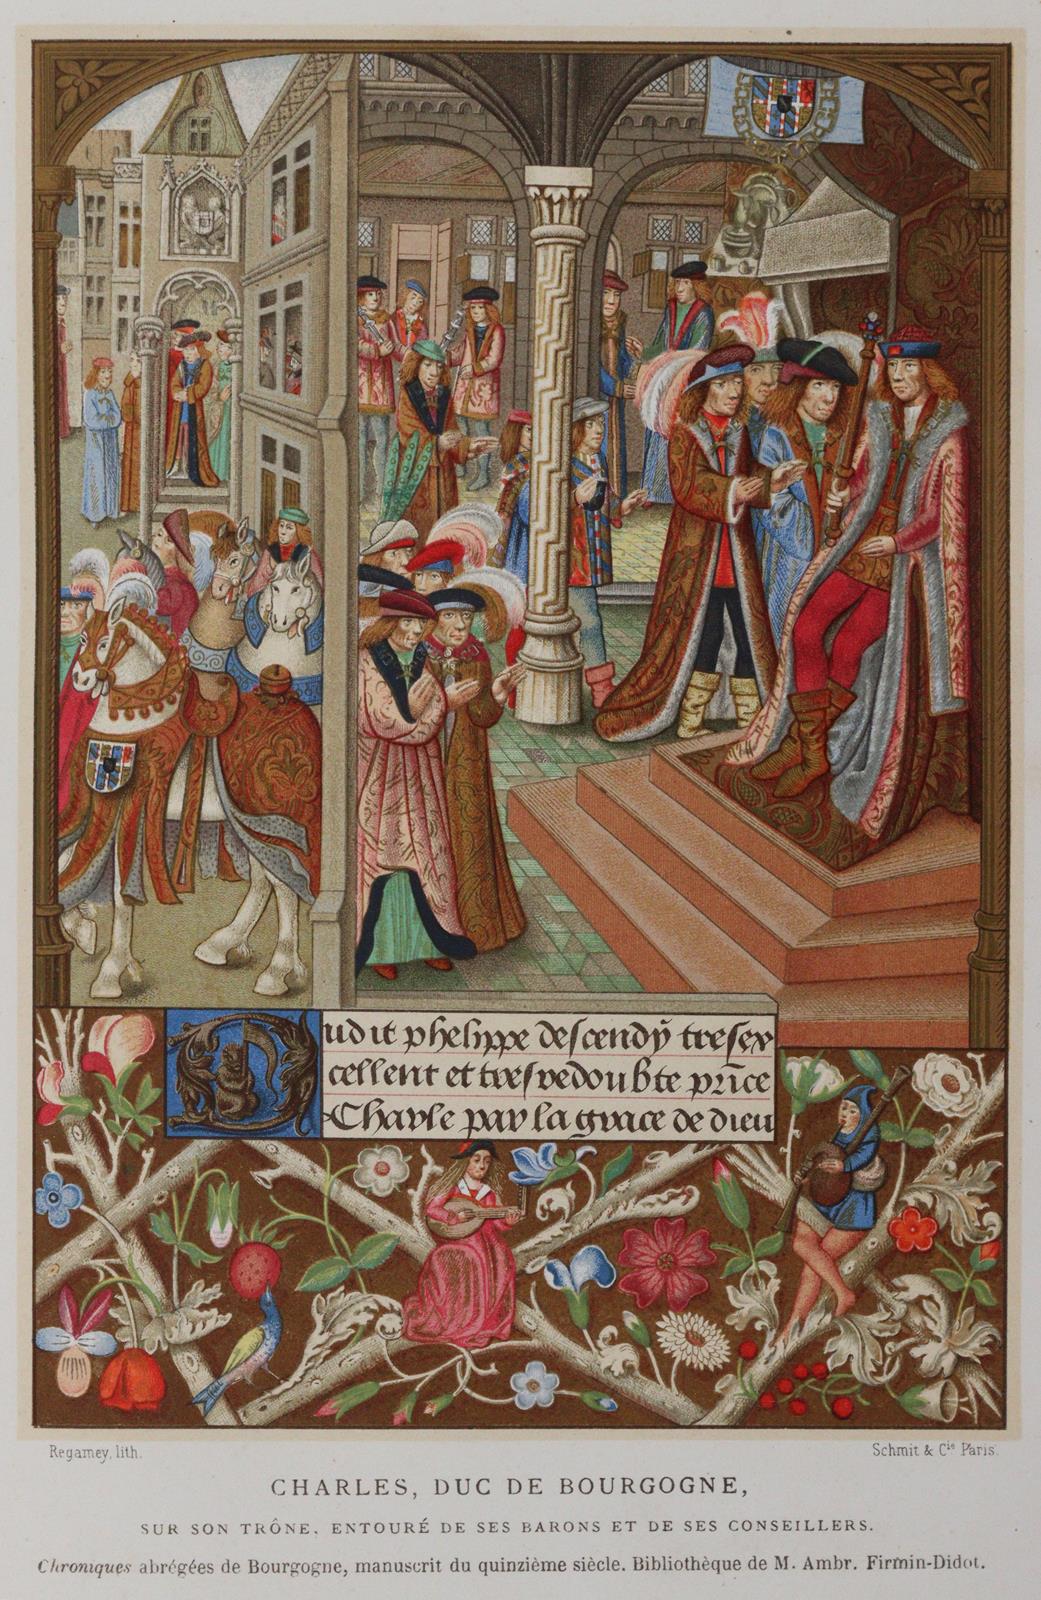 Dudit phelippe descendy̆ tresex
cellent et tresredoubte prīce
Charle par la grace de dieu
Regamey, lith.
Schmit & Cie Paris.
CHARLES, DUC DE BOURGOGNE,
SUR SON TRÔNE, ENTOURÉ DE SES BARONS ET DE SES CONSEILLERS.
Chroniques abrégées de Bourgogne, manuscrit du quinzième siècle. Bibliothèque de M. Ambr. Firmin-Didot.